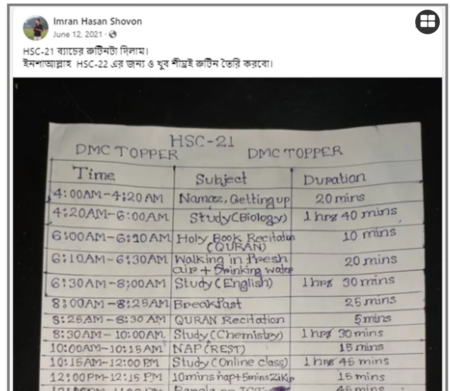 Imran Hasan Shovon
June 12, 2021 ·
HSC-21 ব্যাচের রুটিনটা দিলাম।
ইনশাআল্লাহ HSC-22 এর জন্য ও খুব শীঘ্রই রুটিন তৈরি করবো।
HSC-21
DMC TOPPER DMC TOPPER
Time Subject Duration
4:00AM-4:20AM Namaz, Getting up 20 mins
4:20AM-6:00AM Study (Biology) 1 hrs 40 mins
6:00AM-6:10AM Holy Book Recitation (QURAN) 10 mins
6:10AM-6:30AM Walking in Fresh air + Drinking water 20 mins
6:30AM-8:00AM Study (English) 1 hrs 30 mins
8:00AM-8:25AM Breakfast 25 mins
8:25AM-8:30AM QURAN Recitation 5 mins
8:30AM-10:00AM Study (Chemistry) 1 hrs 30 mins
10:00AM-10:15AM NAP (REST) 15 mins
10:15AM-12:00PM Study (Online class) 1 hrs 45 mins
12:00PM-12:15PM 10mins nap+5mins Zikir 15 mins